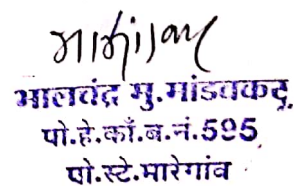 भालचंद्र मु.मांडवकर,
पो.हे.कॉं.ब.नं.595
पो.स्टे.मारेगांव